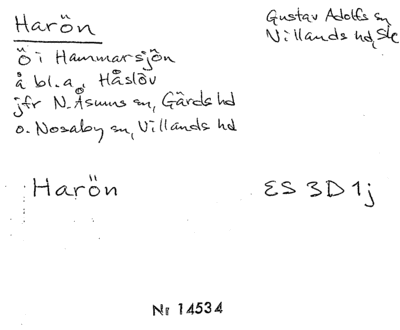 Harön
Gustav Adolfs sn
Villands hd, Sk
ö i Hammarsjön
å bl.a. Håslöv
jfr N. Åsums sn, Gärds hd
o. Nosaby sn, Villands hd
Harön
ES 3D 1j
Nr 14534